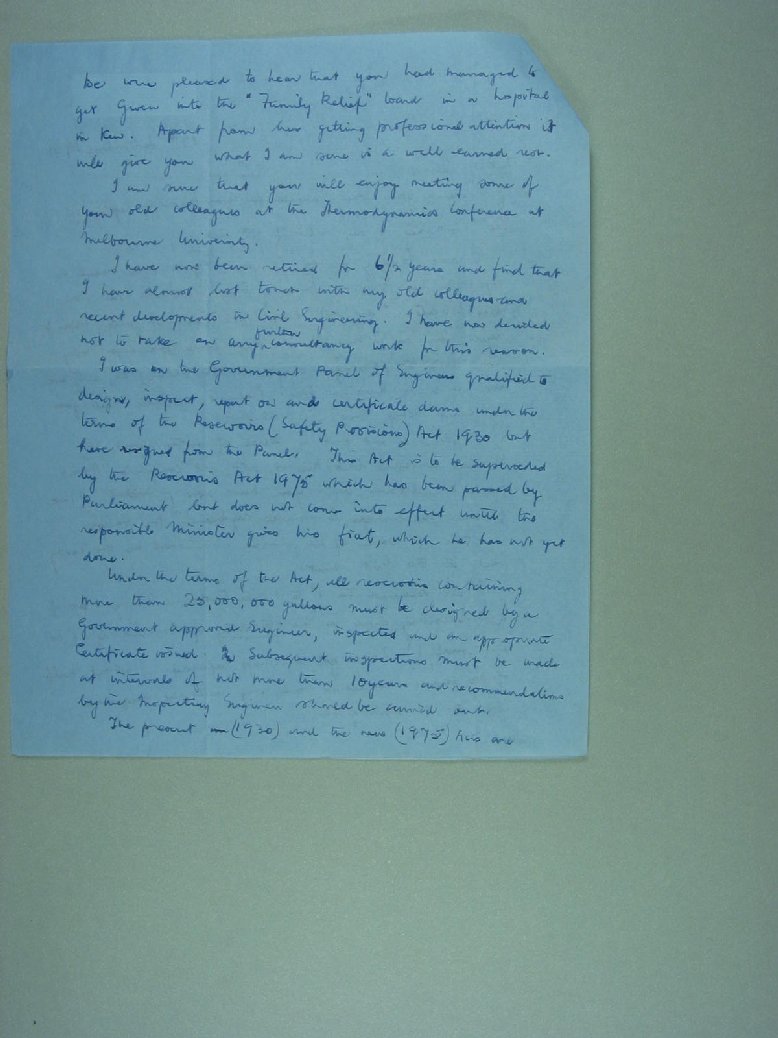 We were pleased to hear that you had managed to
get Gwen into the "Family Relief" ward in a hospital
in Kew. Apart from her getting professional attention it
will give you what I am sure is a well earned rest.
I am sure that you will enjoy meeting some of
your old colleagues at the Thermodynamics Conference at
Melbourne University.
I have now been retired for 6½ years and find that
I have almost lost touch with my old colleagues and
recent developments in Civil Engineering. I have now decided
not to take on any further consultancy work for this reason.
I was on the Government Panel of Engineers qualified to
design, inspect, report on and certificate dams under the
terms of the Reservoirs (Safety Provisions) Act 1930 but
have resigned from the Panel. This Act is to be superceded
by the Reservoirs Act 1975 which has been passed by
Parliament but does not come into effect until the
responsible Minister gives his fiat, which he has not yet
done.
Under the terms of the Act, all reservoirs containing
more than 25,000,000 gallons must be designed by a
Government approved Engineer, inspected and an appropriate
Certificate issued. Subsequent inspections must be made
at intervals of not more than 10 years and recommendations
by the Inspecting Engineer should be carried out.
The present (1930) and the new (1975) Acts are